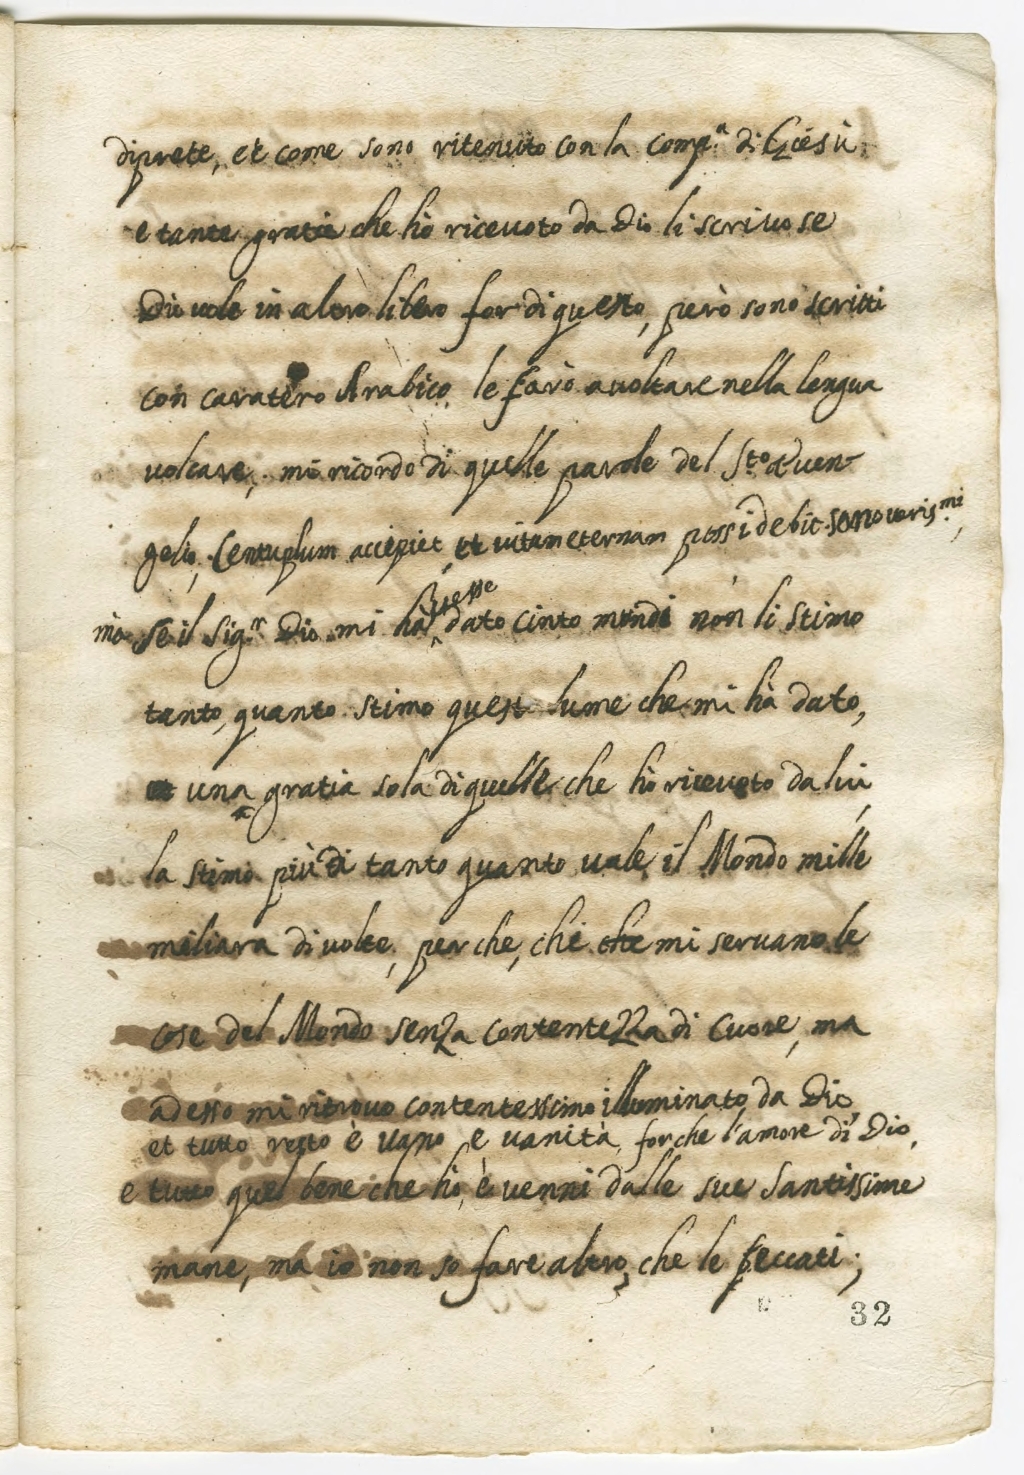 diprete, et come sono ritenuto con la comp.ª di Giesù
e tante gratie che hò ricevuto da Dio li scrivo se
Dio vole in altro libro for di questo, però sono scritti
con caratero Arabico le farò avoltare nella lengua
volcare, mi ricordo di quelle parole del S.to Evan-
gelio, Centuplum accipiet, et vitam eternam possidebit sono veris.mi,
mo se il Sig.r Dio mi hà avesse dato cinto mundi non li stimo
tanto, quanto stimo quest lume che mi hà dato,
et una gratia sola di quelle che hò ricevuto da lui,
la stimo più di tanto quanto vale il Mondo mille
miliara di volte, perche, che che mi servano le
cose del Mondo senza contentezza di Cuore, ma
adesso mi ritrovo contentessimo illuminato da Dio,
et tutto resto è vano e vanità, forche l'amore di Dio,
e tutto quel bene che hò, è venni dalle sue Santissime
mane, ma io non so fare altro, che le peccati;
32